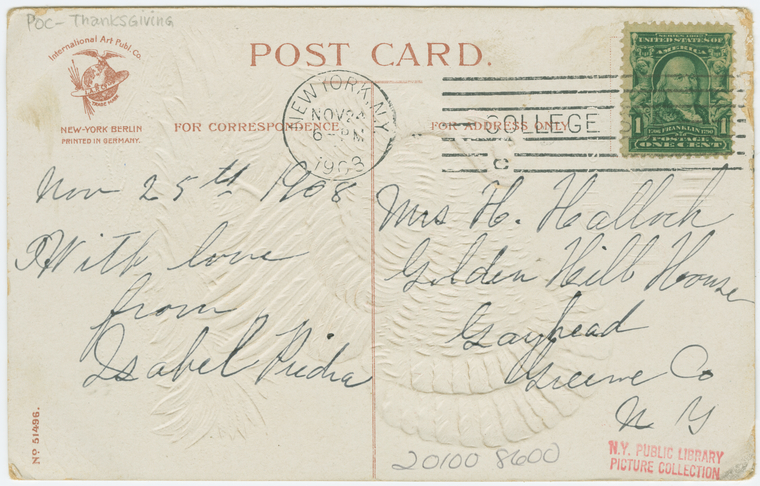 POC - Thanksgiving
International Art Publ. Co.
TRADE MARK
NEW-YORK BERLIN
PRINTED IN GERMANY.
POST CARD.
FOR CORRESPONDENCE
FOR ADDRESS ONLY
NEW YORK, N.Y.
NOV 24
6 - PM
1908
COLLEGE
SERIES 1902
UNITED STATES OF
AMERICA
1 1706 FRANKLIN 1790 1
POSTAGE
ONE CENT
Nov 25th 1908
With love
from
Isabel
Mrs H. Hallock
Golden Hill House
Gayhead
Greene Co
N Y
No 51496.
20100 8600
N.Y. PUBLIC LIBRARY
PICTURE COLLECTION